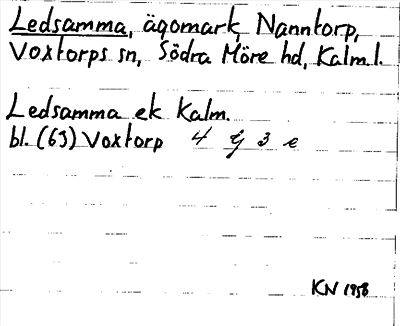 Ledsamma, ägomark, Nanntorp,
Voxtorps sn, Södra Möre hd, Kalm. l.
Ledsamma ek Kalm.
bl. (63) Voxtorp 4 g 3 e
KN 1958